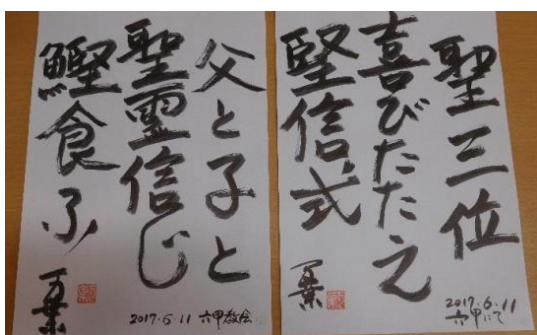 聖三位
喜びたたえ
堅信式
万葉
2017.6.11
六甲にて
父と子と
聖霊信じ
鰹食ふ
万葉
2017.6.11 六甲教会